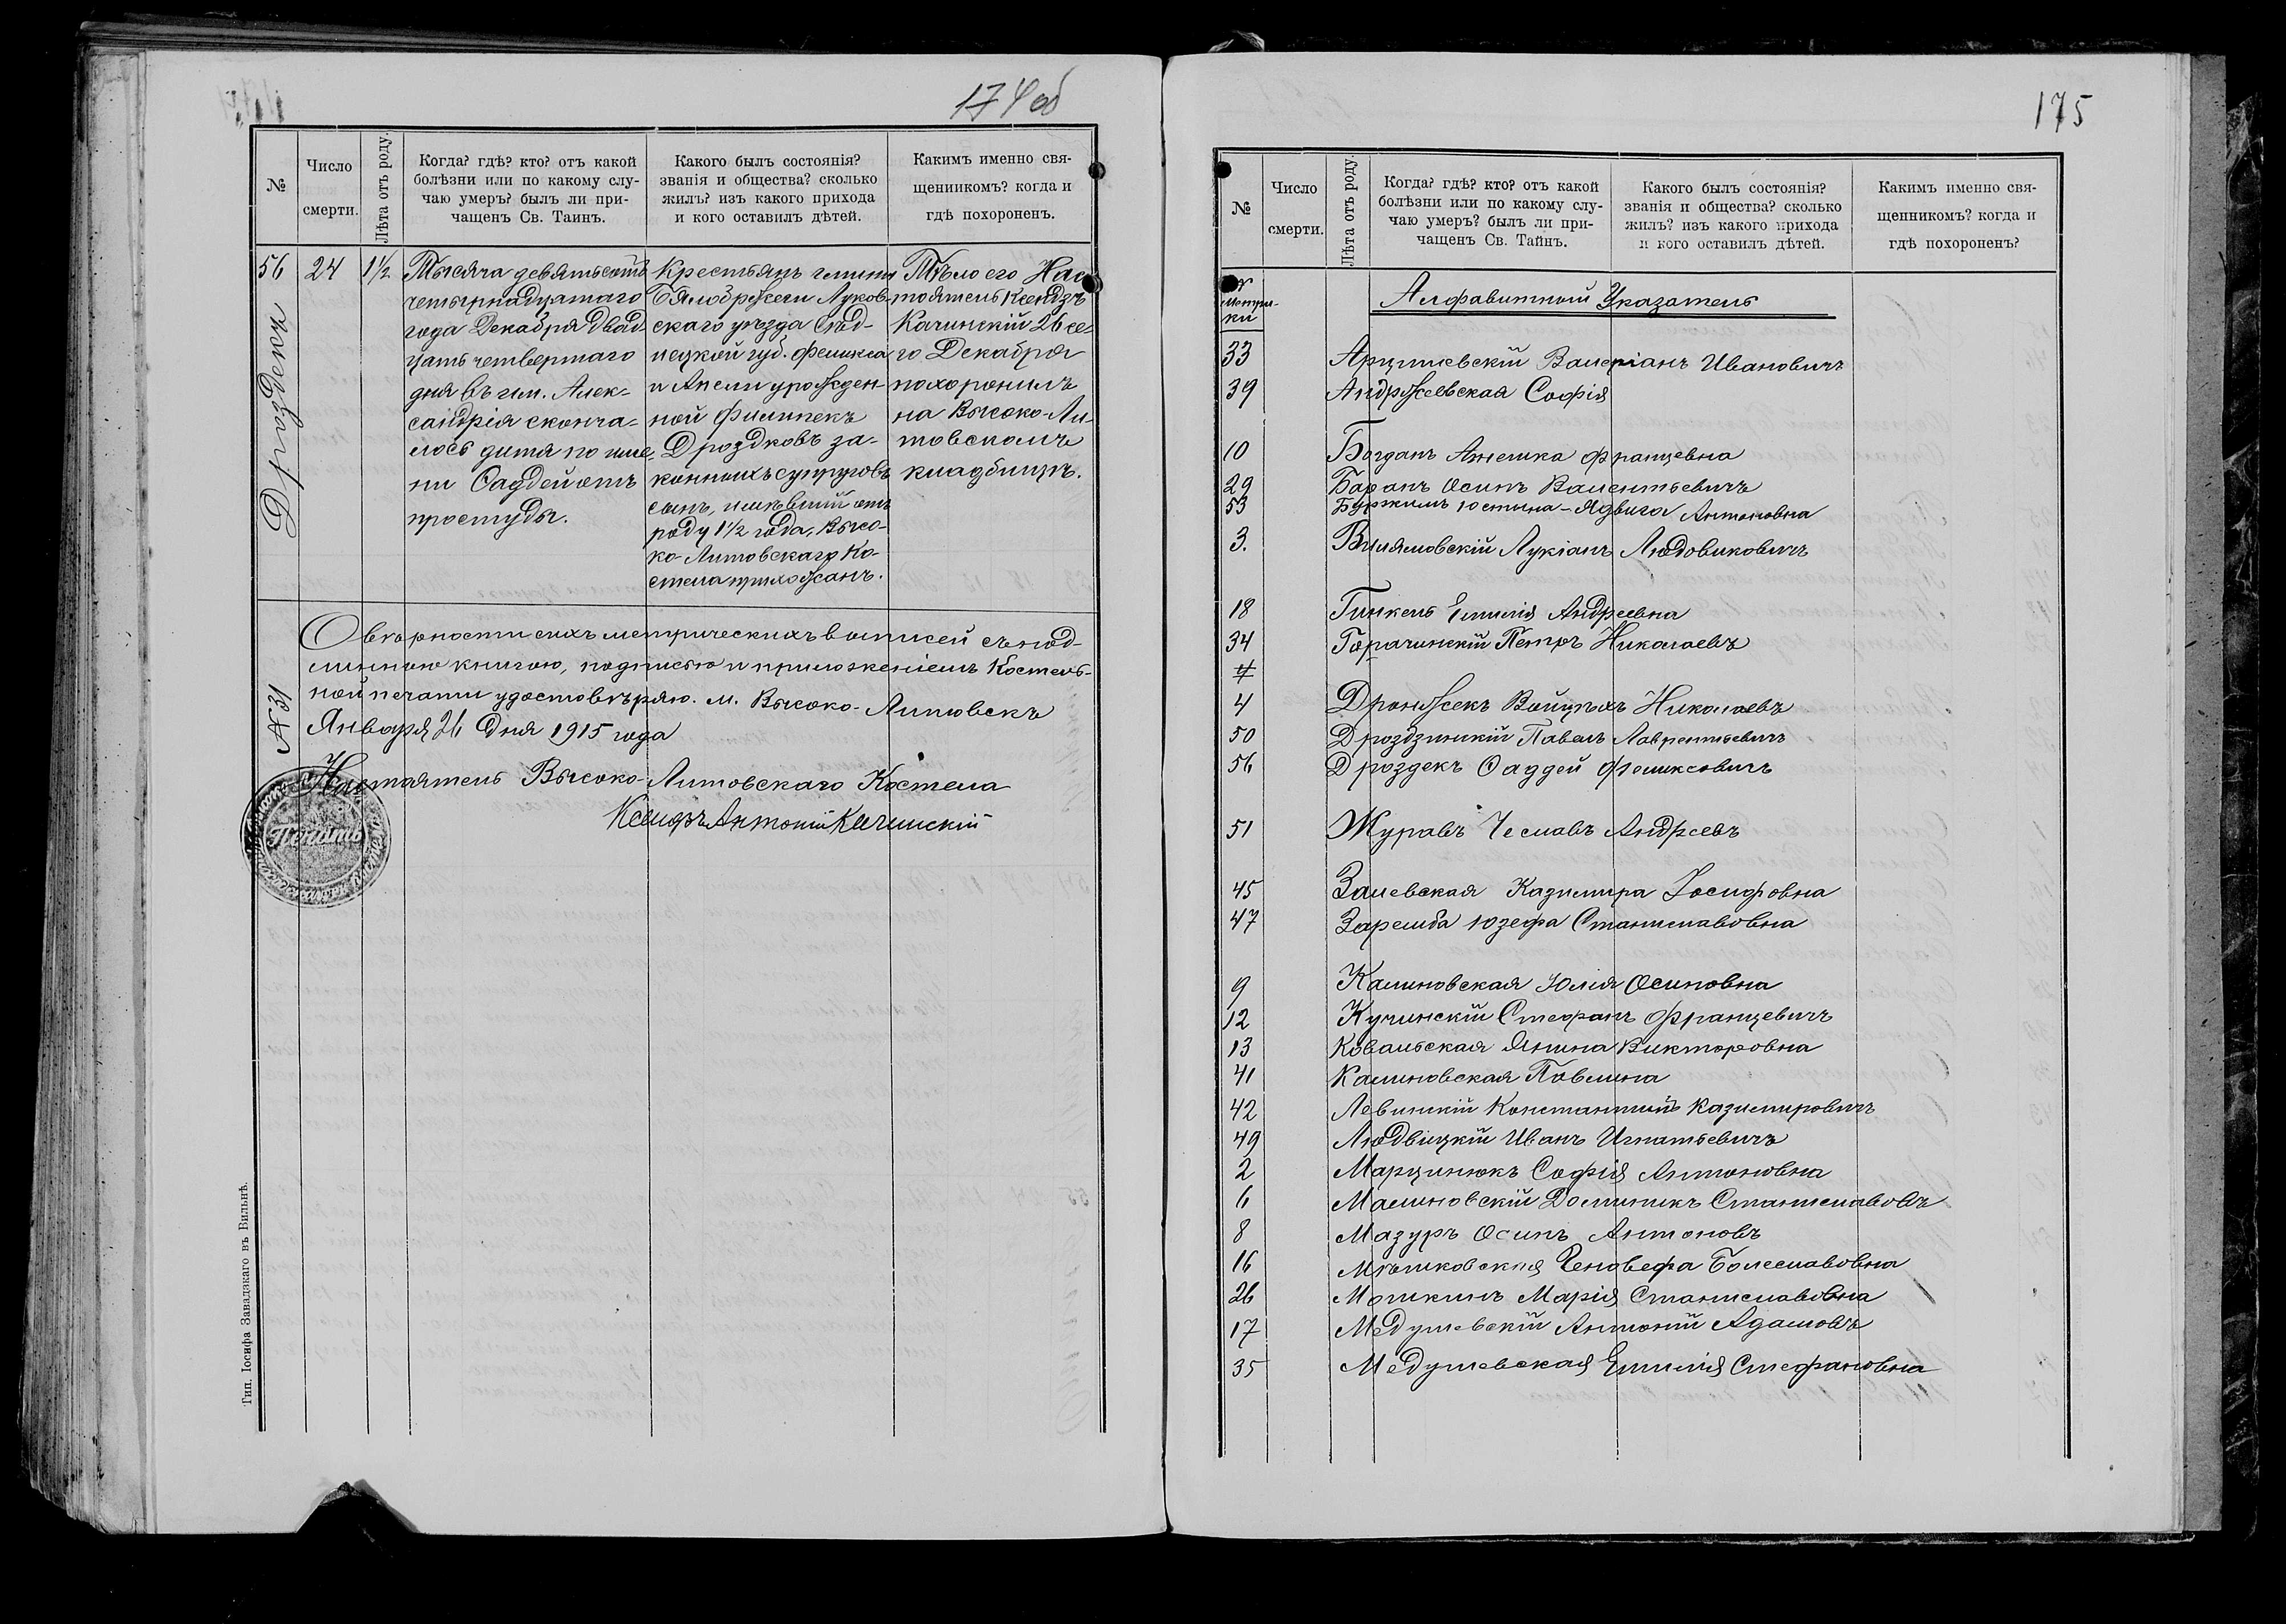 174 об
№
Число
смерти.
Лѣта отъ роду.
Когда? гдѣ? кто? отъ какой
болѣзни или по какому слу-
чаю умеръ? былъ ли при-
чащенъ Св. Таинъ.
Какого былъ состоянія?
званія и общества? сколько
жилъ? изъ какого прихода
и кого оставилъ дѣтей.
Какимъ именно свя-
щенникомъ? когда и
гдѣ похороненъ.
56
Дроздекъ
24
1½
Тысяча девятьсотъ
четырнадцатаго
года Декабря двад-
цать четвертаго
дня въ им. Алек-
сандрія сконча-
лось дитя по име-
ни Фаддей отъ
простуды.
Крестьянъ гмины
Бялобржеги Луков-
скаго уѣзда Сѣд-
лецкой губ. Феликса
и Анели урожден-
ной Филипекъ
Дроздковъ за-
конныхъ супруговъ
сынъ, имѣвшій отъ
роду 1½ года, Высо-
ко-Литовскаго Ко-
стела прихожанъ.
Тѣло его Нас-
тоятель Ксендзъ
Качинскій 26 се-
го Декабря
похоронилъ
на Высоко-Ли-
товскомъ
кладбищѣ.
№ 31
О вѣрности сихъ метрическихъ выписей съ под-
линною книгою, подписью и приложеніемъ Костель-
ной печати удостовѣряю. м. Высоко-Литовскъ
Января 26 дня 1915 года
Настоятель Высоко-Литовскаго Костела
Ксендзъ Антоній Качинскій
Печать
Тип. Іосифа Завадзкаго въ Вильнѣ.
175
№
Число
смерти.
Лѣта отъ роду.
Когда? гдѣ? кто? отъ какой
болѣзни или по какому слу-
чаю умеръ? былъ ли при-
чащенъ Св. Тайнъ.
Какого былъ состоянія?
званія и общества? сколько
жилъ? изъ какого прихода
и кого оставилъ дѣтей.
Какимъ именно свя-
щенникомъ? когда и
гдѣ похороненъ?
№
Метри-
ки
Алфавитный Указатель
33 Арцишевскій Валеріанъ Ивановичъ
39 Андржеевская Софія
10 Богданъ Анелика Францевна
29 Баранъ Осипъ Валентьевичъ
53 Юстина-Ядвига Антоновна
3. Вилямовскій Лукіанъ Людовиковичъ
18 Гинкель Емилія Андреевна
34 Горачинскій Петръ Николаевъ
4 Дронжекъ Войцѣхъ Николаевъ
50 Дроздзинскій Павелъ Лаврентьевичъ
56 Дроздекъ Фаддей Феликсовичъ
51 Журавъ Чеславъ Андреевъ
45 Залевская Казимира Іосифовна
47 Заремба Юзефа Станиславовна
9 Калиновская Юлія Осиповна
12 Кучинскій Стефанъ Францевичъ
13 Ковальская Янина Викторовна
41 Калиновская Павлина
42 Левинскій Константинъ Казимировичъ
49 Людвицкій Иванъ Игнатьевичъ
2 Марцинюкъ Софія Антоновна
6 Малиновскій Доминикъ Станиславовъ
8 Мазуръ Осипъ Антоновъ
16 Геновефа Болеславовна
26 Марія Станиславовна
17 Медушевскій Антоній Адамовъ
35 Медушевская Емилія Стефановна